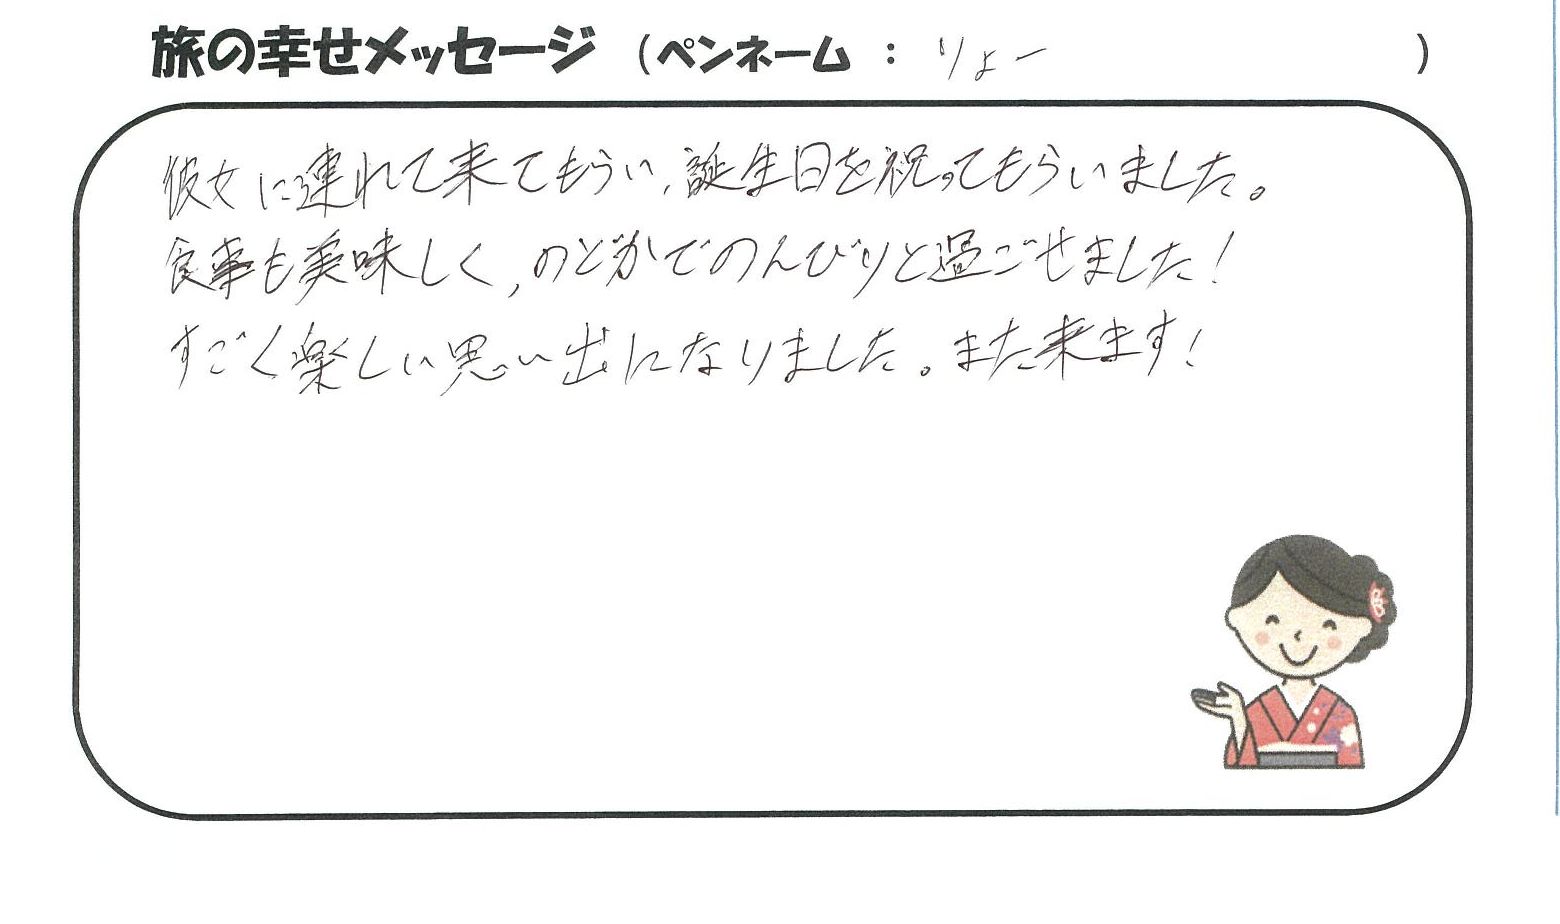 旅の幸せメッセージ (ペンネーム : りょー )
彼女に連れて来てもらい、誕生日を祝ってもらいました。
食事も美味しく、のどかでのんびりと過ごせました!
すごく楽しい思い出になりました。また来ます!